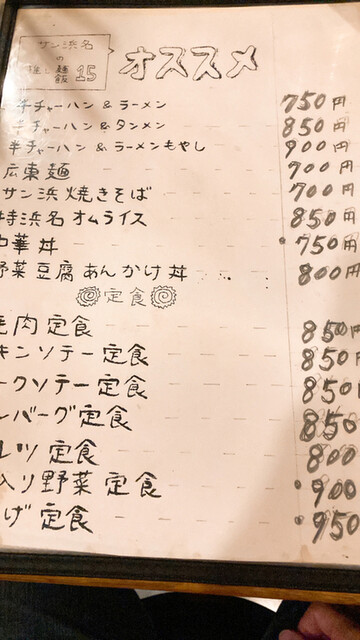 サン浜名
の
推し麺飯15
オススメ
半チャーハン & ラーメン 750円
半チャーハン & タンメン 850円
半チャーハン & ラーメンもやし 900円
広東麺 700円
サン浜焼きそば 700円
特浜名オムライス 850円
中華丼 750円
野菜豆腐あんかけ丼 800円
定食
肉定食 850円
キンソテー定食 850円
ークソテー定食 850円
ンバーグ定食 850
レツ定食 800
入り野菜定食 900
げ定食 950